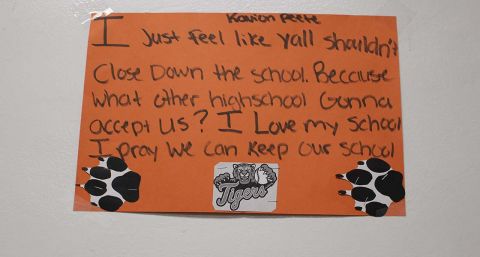 Kavion Peete
I Just feel like yall shouldn't
Close Down the school. Because
what other highschool Gonna
accept us? I Love my school
I pray we can keep our school
Tigers